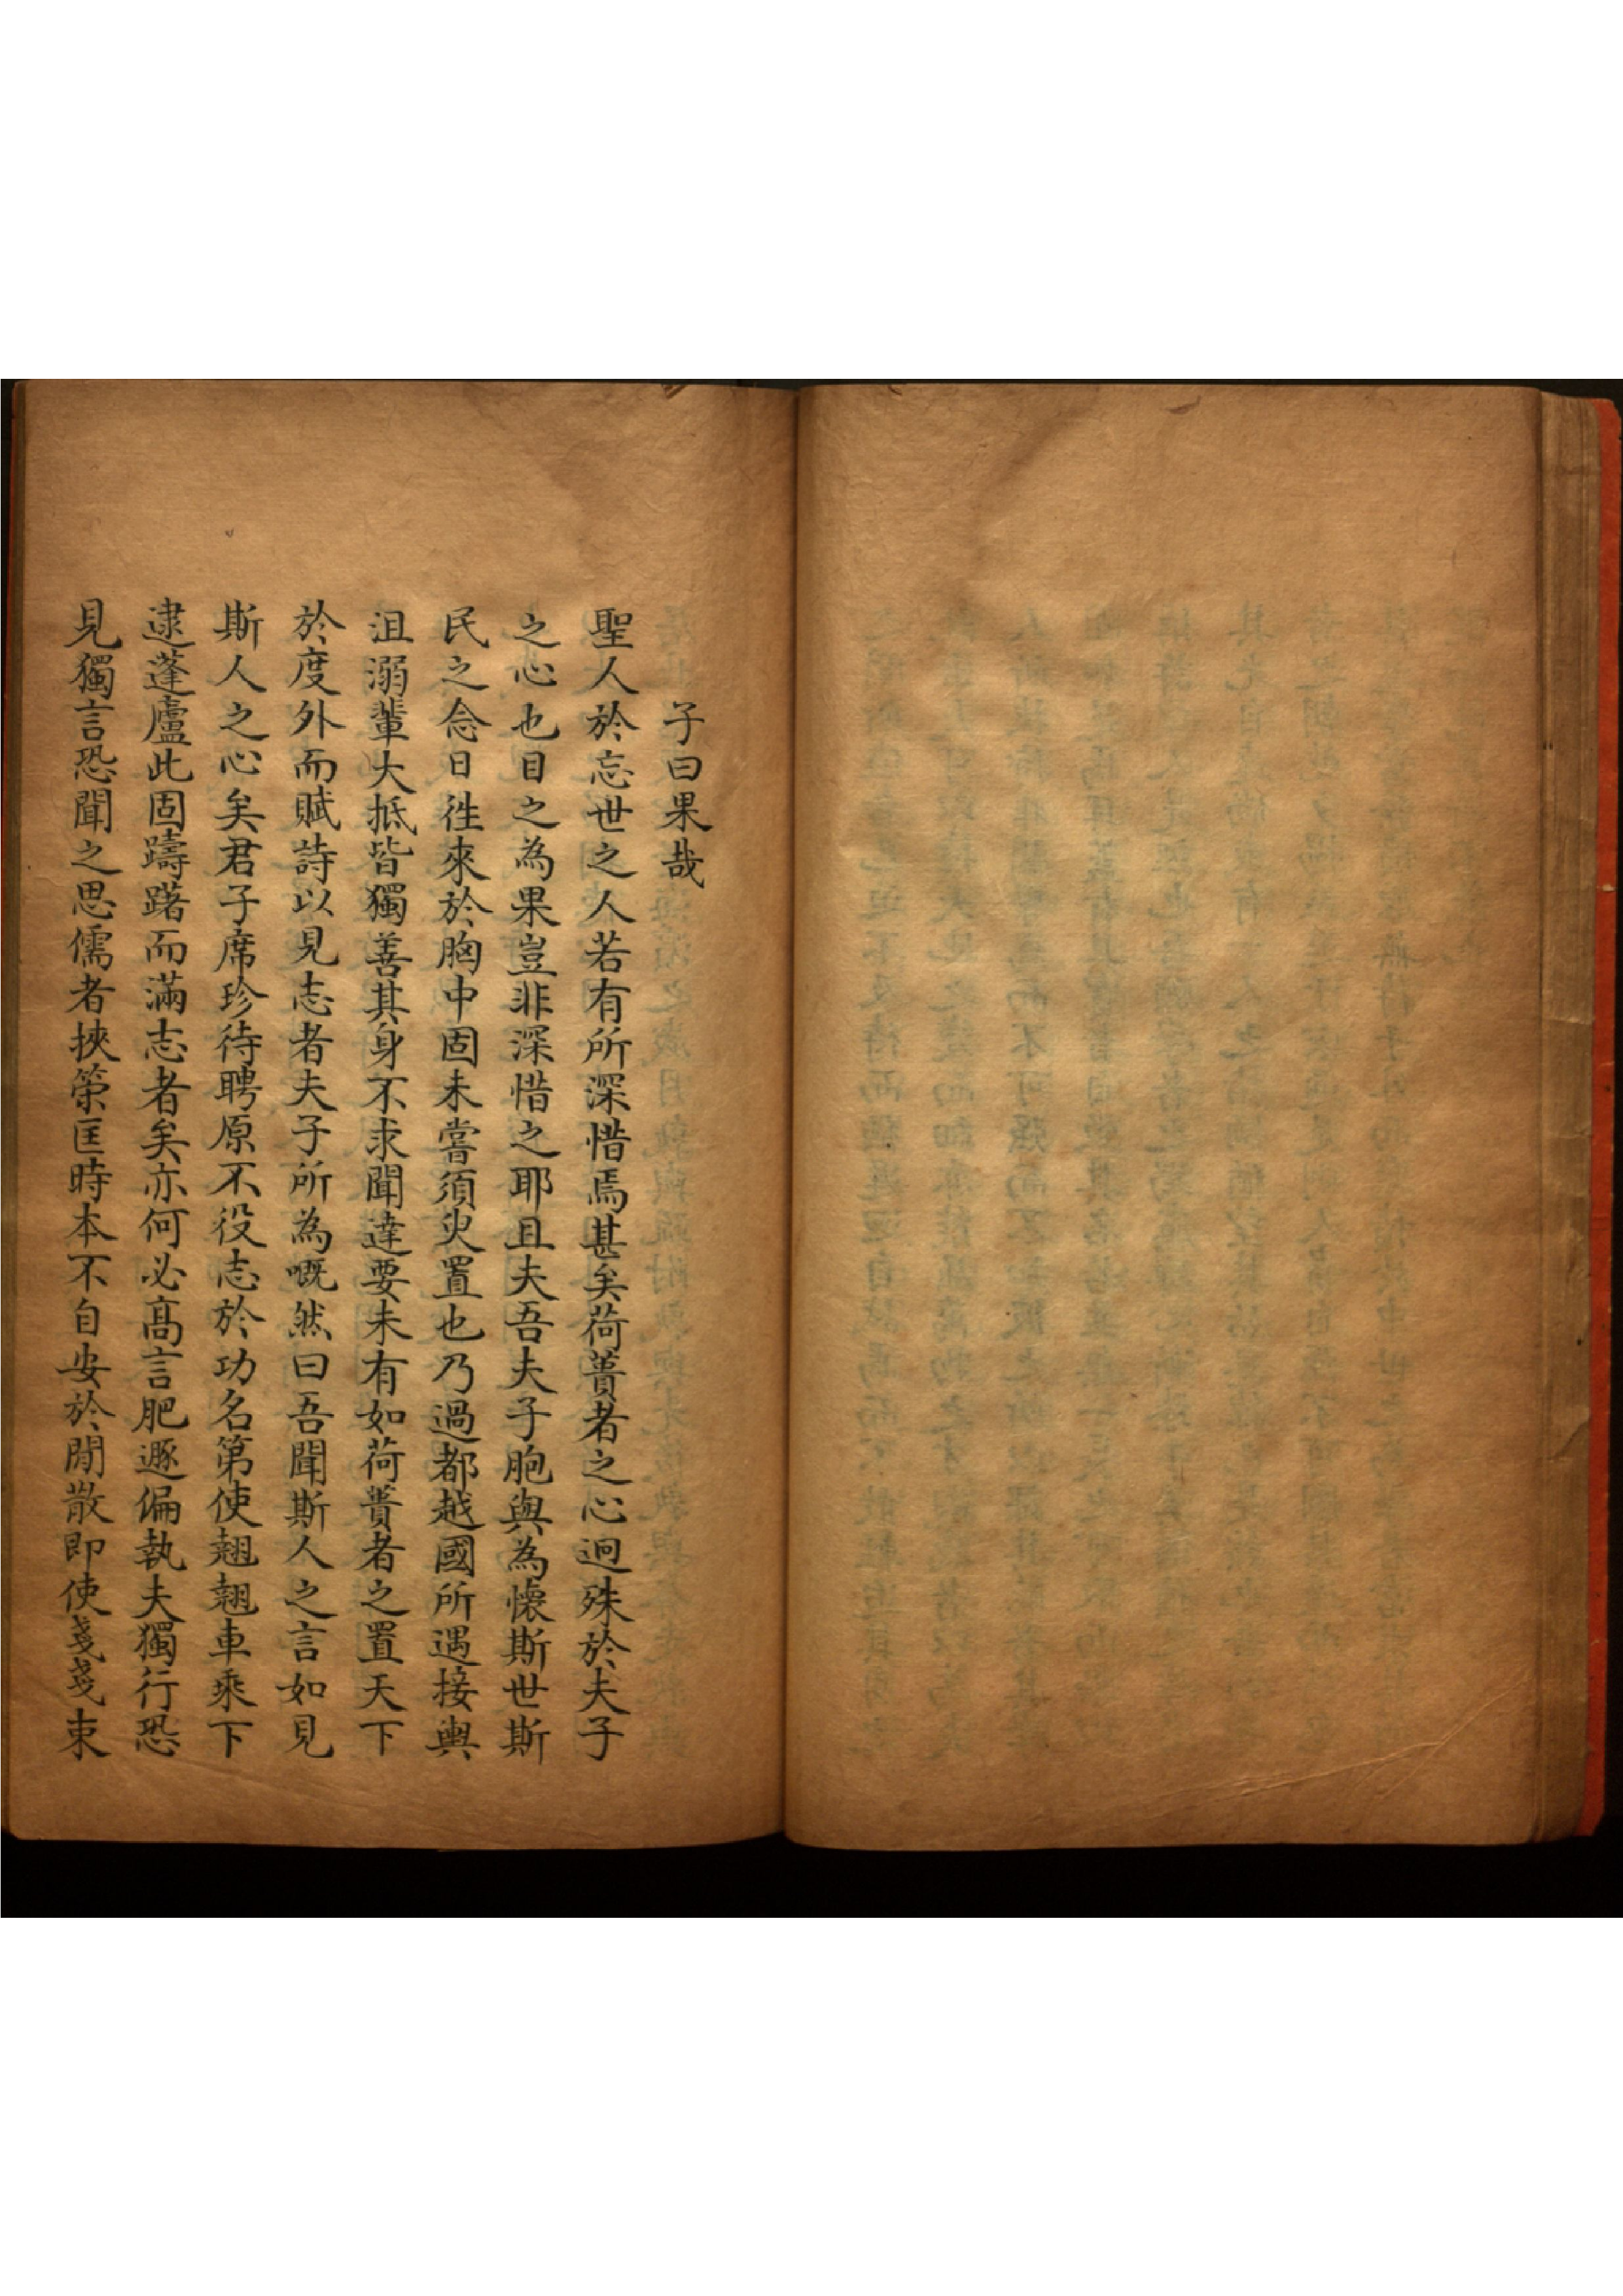 子曰果哉
聖人於忘世之人若有所深惜焉甚矣荷蕢者之心迥殊於夫子
之心也目之為果豈非深惜之耶且夫吾夫子胞與為懷斯世斯
民之念日徃來於胸中固未嘗須臾置也乃過都越國所遇接輿
沮溺輩大抵皆獨善其身不求聞達要未有如荷蕢者之置天下
於度外而賦詩以見志者夫子所為嘅然曰吾聞斯人之言如見
斯人之心矣君子席珍待聘原不役志於功名第使翹翹車乘下
逮蓬廬此固躊躇而滿志者矣亦何必高言肥遯偏執夫獨行恐
見獨言恐聞之思儒者挾策匡時本不自安於閒散即使戔戔束